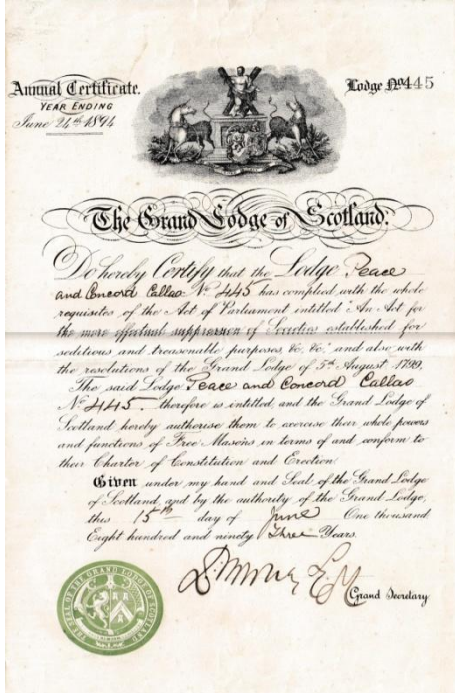 Annual Certificate.
YEAR ENDING
June 24th 1894
Lodge No 445
The Grand Lodge of Scotland.
Do hereby Certify that the Lodge Peace
and Concord Callao No 445 has complied with the whole
requisites of the Act of Parliament entitled "An Act for
the more effectual suppression of Societies established for
seditious and treasonable purposes, &c, &c," and also with
the resolutions of the Grand Lodge of 5th August 1799.
The said Lodge Peace and Concord Callao
No 445. therefore is entitled, and the Grand Lodge of
Scotland hereby authorise them to exercise their whole powers
and functions of Free Masons, in terms of and conform to
their Charter of Constitution and Erection
Given under my hand and Seal of the Grand Lodge
of Scotland, and by the authority of the Grand Lodge,
this 15th day of June One thousand
Eight hundred and ninety three Years.
Grand Secretary
THE SEAL OF THE GRAND LODGE OF SCOTLAND